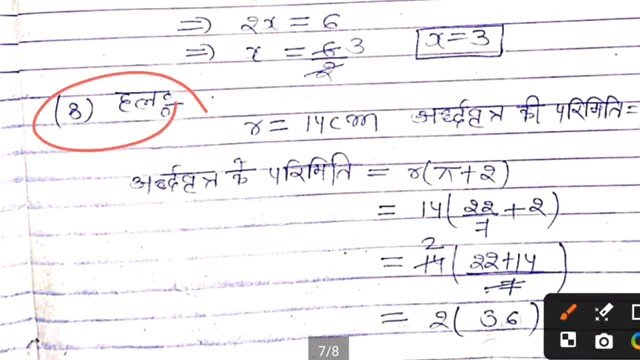 ⇒ 2x = 6
⇒ x = 6/2 3 x = 3
(8) हलः
r = 14cm अर्द्धवृत्त की परिमिति =
अर्द्धवृत्त के परिमिति = r(π+2)
= 14(22/7 + 2)
= 14 2 (22+14/7)
= 2(36)
7/8